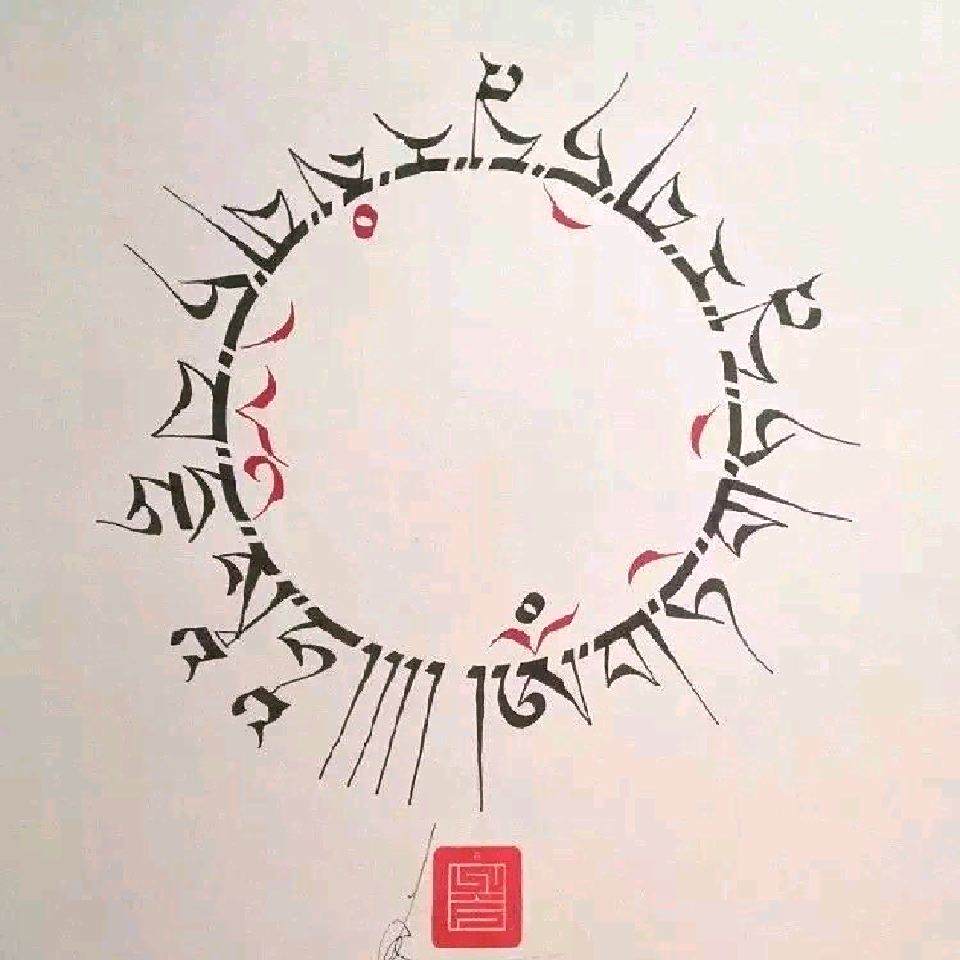 །ཨོཾ་ག་ཏེ་ག་ཏེ་པཱ་ར་ག་ཏེ་པཱ་ར་སཾ་ག་ཏེ་བོ་དྷི་སྭཱ་ཧཱ།།།།